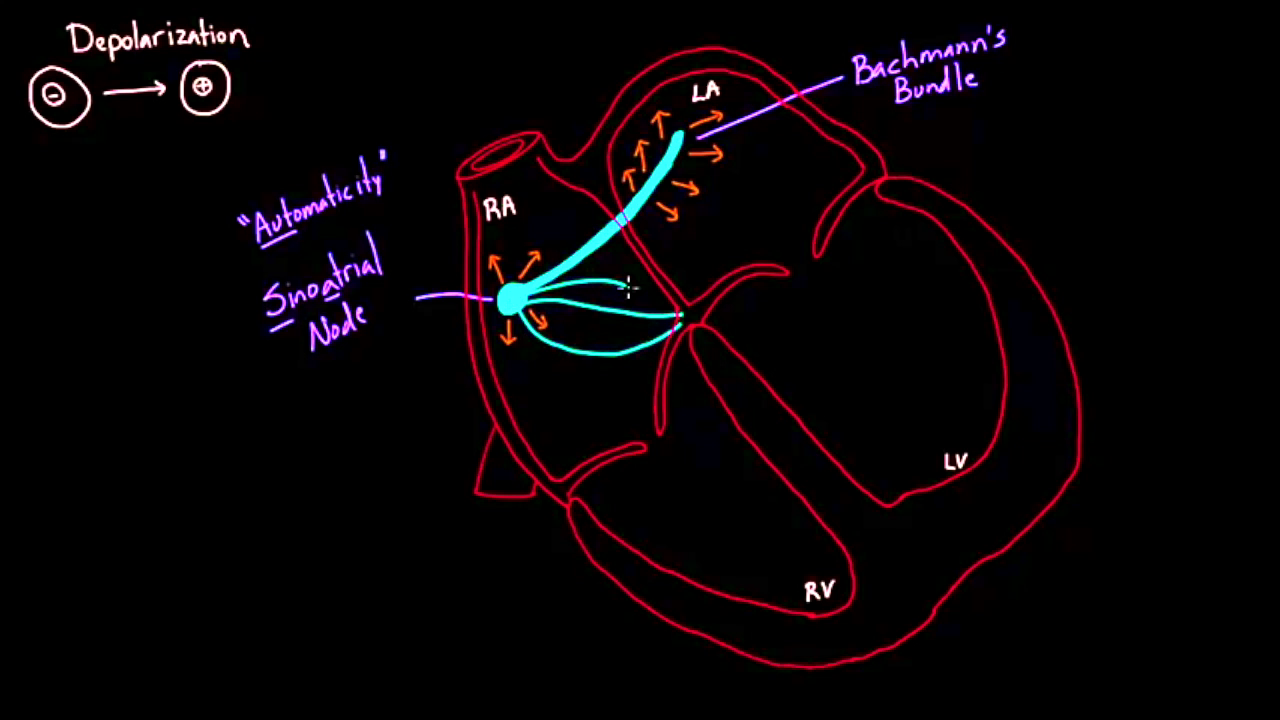 Depolarization
- → +
"Automaticity"
Sinoatrial
Node
RA
LA
Bachmann's
Bundle
LV
RV